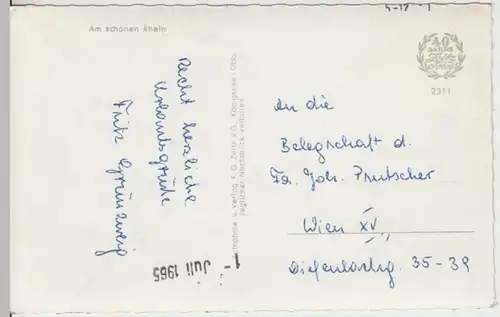 Am schönen Rhein
40
JAHRE
2311
Recht herzliche
Urlaubsgrüße
Fritz Grünzweig
Aufnahme u. Verlag F. G. Zeitz KG., Königssee / Obb.
Jeglicher Nachdruck verboten
An die
Belegschaft d.
Fa. Joh. Prutscher
Wien XV
Diefenbachg. 35-39
1- Juli 1965